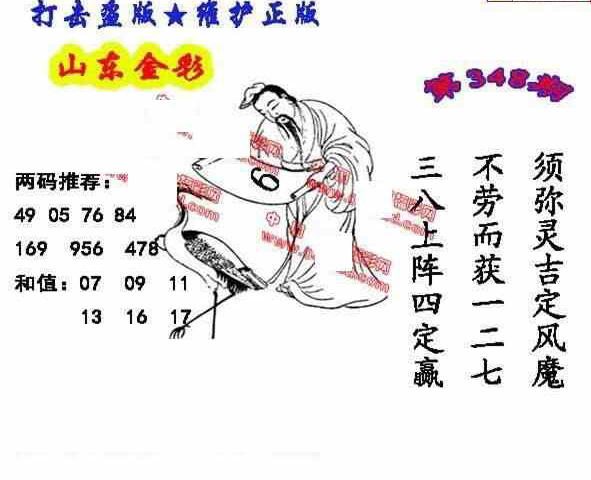 打击盗版★维护正版
山东金彩
第348期
须弥灵吉定风魔
不劳而获一二七
三八上阵四定赢
两码推荐:
49 05 76 84
169 956 478
和值: 07 09 11
13 16 17
6